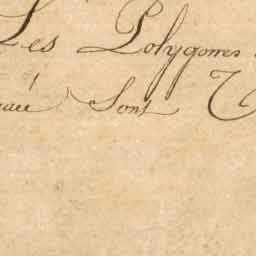 Les Polygones
Sont